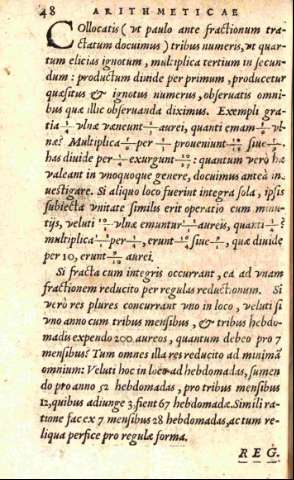 48 ARITHMETICAE
Collocatis (ut paulo ante fractionum tra-
ctatum docuimus) tribus numeris, ut quar-
tum elicias ignotum, multiplica tertium in secun-
dum: productum diuide per primum, producetur
quæsitus & ignotus numerus, obseruatis omni-
bus quæ illic obseruanda diximus. Exempli gra-
tia vlnæ væneunt aurei, quanti emam vl-
næ? Multiplica per proueniunt siue
has diuide per exurgunt : quantum verò hæ
valeant in vnoquoque genere, docuimus anteà in-
uestigare. Si aliquo loco fuerint integra sola, ipsis
subiecta vnitate similis erit operatio cum minu-
tijs, veluti vlnæ emuntur aureis, quanti ?
multiplica per , erunt siue , quæ diuide
per 10, erunt aurei.
Si fracta cum integris occurrant, ea ad vnam
fractionem reducito per regulas reductionum. Si
verò res plures concurrant vno in loco, veluti si
vno anno cum tribus mensibus, & tribus hebdo-
madis expendo 200 aureos, quantum debeo pro 7
mensibus? Tum omnes illa res reducito ad minimā
omnium: Veluti hoc in loco ad hebdomadas, sumen
do pro anno 52 hebdomadas, pro tribus mensibus
12, quibus adiunge 3, fient 67 hebdomadæ. Simili ra-
tione fac ex 7 mensibus 28 hebdomadas, actum re-
liqua perfice pro regulæ forma.
REG.